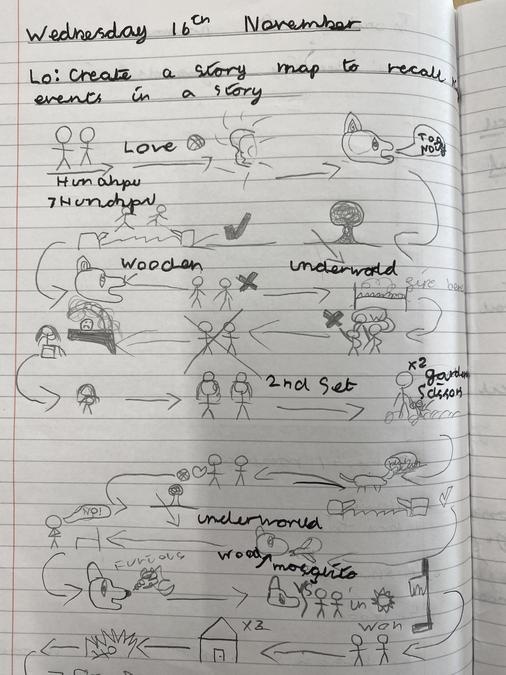 Wednesday 16th November
Lo: Create a story map to recall
events in a story
LOVE
TOO
NOISY
Hunahpu
7Hunahpu
wooden
underworld
give
x2
2nd Set
garden
NO!
underworld
Furious
wood
mosquito
VS
in
won
x3